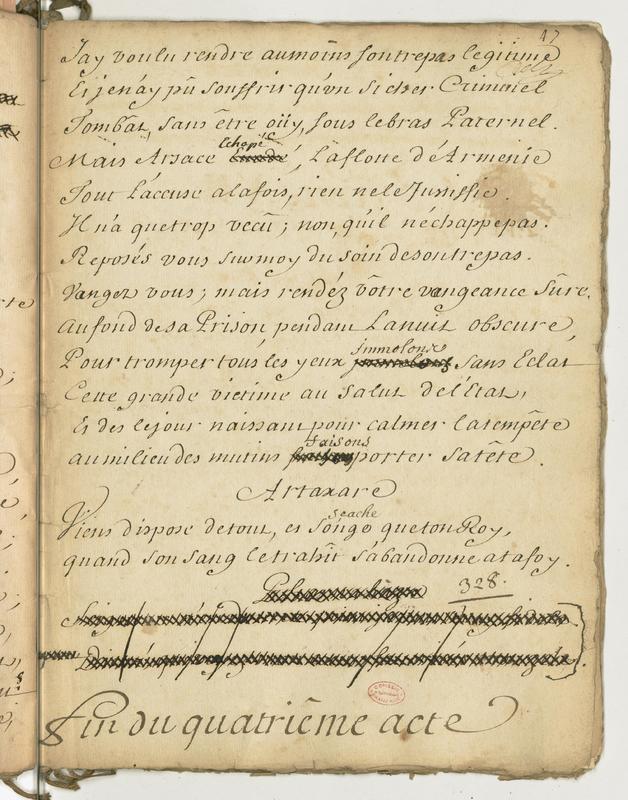 47
J'ay voulu rendre aumoins son trepas legitime
Et je n'ay pû souffrir qu'un si cher Criminel
Tombât, sans être oüy, sous le bras Paternel.
échapé
Mais Arsace, La flotte d'Armenie
Tout L'accuse alafois, rien ne le Justifie.
Il n'a quetrop vecû; non, qu'il n'échappe pas.
Reposés vous sur moy du soin de son trepas.
Vangez vous; mais rendéz vôtre vangeance sûre.
Au fond de sa Prison pendant La nuit obscure,
immolons
Pour tromper tous les yeux sans Eclat
Cette grande victime au salut de l'Etat,
Et dès le jour naissant pour calmer la tempête
faisons
au milieu des mutins porter sa tête.
Artaxare
scache
Viens dispose de tout, et songe que ton Roy,
quand son sang le trahit s'abandonne a ta foy.
328.
fin du quatriême acte